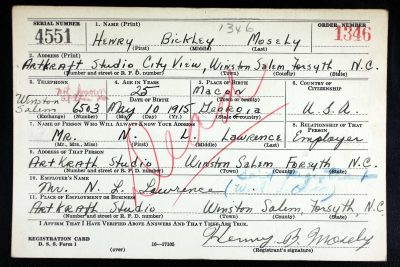 SERIAL NUMBER 1. NAME (Print) 1346 ORDER NUMBER
4551 HENRY BICKLEY MOSELY 1346
(First) (Middle) (Last)
2. ADDRESS (Print)
ArtKraft Studio City View, Winston Salem, Forsyth N.C.
(Number and street or R. F. D. number) (Town) (County) (State)
3. TELEPHONE 4. AGE IN YEARS 5. PLACE OF BIRTH 6. COUNTRY OF CITIZENSHIP
25 Macon
DATE OF BIRTH (Town or county)
Winston Salem 6503 May 10 1915 Georgia U.S.A.
(Exchange) (No.) (Mo.) (Day) (Yr.) (State or country)
Dead
7. NAME OF PERSON WHO WILL ALWAYS KNOW YOUR ADDRESS 8. RELATIONSHIP OF THAT PERSON
Mr. N. L. Lawrence Employer
(Mr., Mrs., Miss) (First) (Middle) (Last)
9. ADDRESS OF THAT PERSON
ArtKraft Studio Winston Salem Forsyth N.C.
(Number and street or R. F. D. number) (Town) (County) (State)
10. EMPLOYER'S NAME
Mr. N. L. Lawrence
11. PLACE OF EMPLOYMENT OR BUSINESS
ArtKraft Studio Winston Salem, Forsyth, N.C.
(Number and street or R. F. D. number) (Town) (County) (State)
I AFFIRM THAT I HAVE VERIFIED ABOVE ANSWERS AND THAT THEY ARE TRUE.
REGISTRATION CARD
D. S. S. Form 1 (over) 16—17105 Henry B. Mosely
(Registrant's signature)